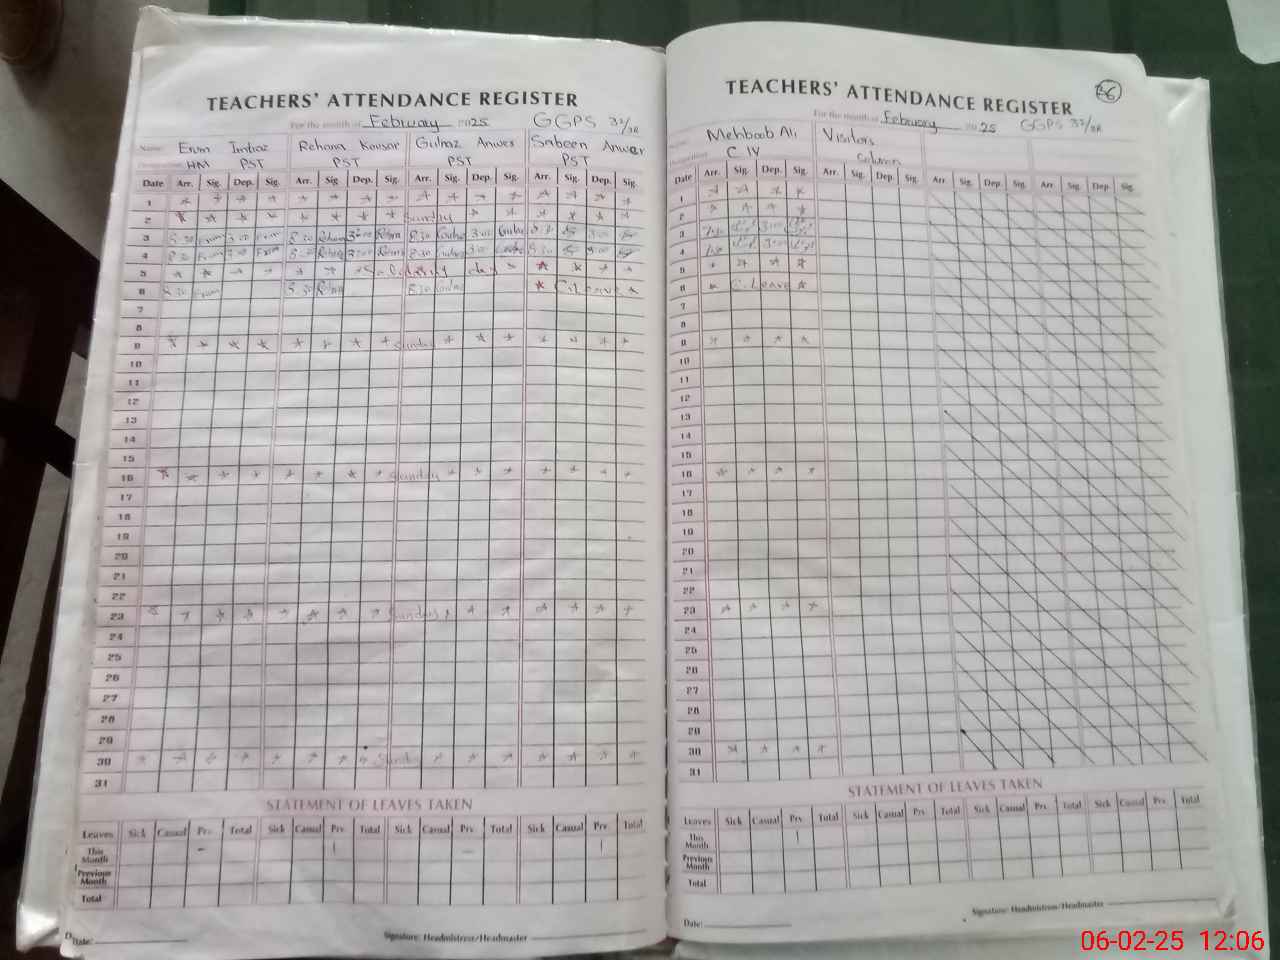 TEACHERS' ATTENDANCE REGISTER
For the month of February 2025 GGPS 32/2R
Name: Erum Imtiaz Rehana Kousar Gulnaz Anwer Sabeen Anwer
HM PST PST PST PST
Date Arr. Sig. Dep. Sig. Arr. Sig. Dep. Sig. Arr. Sig. Dep. Sig. Arr. Sig. Dep. Sig.
1 * * * * * * * * * * * * * * * *
2 * * * * * * * * Sunday * * * * * *
3 8.30 Erum 3.00 Erum 8.30 Rehana 3:00 Rehana 8.30 3.00 3.00
4 8.30 Erum 3.00 Erum 8.30 Rehana 3:00 Rehana 8.30 3.00 8.30 3.00
5 * * * * * * * Solidarity day * * * * *
6 8.30 Erum 8.30 Rehana 8.30 * C. Leave *
7
8
9 * * * * * * * * Sunday * * * * * * *
10
11
12
13
14
15
16 * * * * * * * * Sunday * * * * * * *
17
18
19
20
21
22
23 * * * * * * * Sunday * * * * * * *
24
25
26
27
28
29
30 * * * * * * * * Sunday * * * * * * *
31
STATEMENT OF LEAVES TAKEN
Leaves Sick Casual Prv. Total Sick Casual Prv. Total Sick Casual Prv. Total Sick Casual Prv. Total
This Month - 1 - 1
Previous Month
Total
Date:
Signature: Headmistress/Headmaster
TEACHERS' ATTENDANCE REGISTER
36
For the month of February 2025 GGPS 32/2R
Mehboob Ali Visitors
C IV Column
Date Arr. Sig. Dep. Sig. Arr. Sig. Dep. Sig. Arr. Sig. Dep. Sig. Arr. Sig. Dep Sig.
1 * * * *
2 * * * *
3 7.30 3.00
4 7.30 3.00
5 * * * *
6 * C. Leave *
7
8
9 * * * *
10
11
12
13
14
15
16 * * * *
17
18
19
20
21
22
23 * * * *
24
25
26
27
28
29
30 * * * *
31
STATEMENT OF LEAVES TAKEN
Leaves Sick Casual Prv. Total Sick Casual Prv. Total Sick Casual Prv. Total Sick Casual Prv. Total
This Month 1
Previous Month
Total
Date:
Signature: Headmistress/Headmaster
06-02-25 12:06